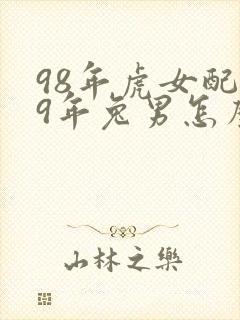 98年虎女配
9年兔男怎
山林之樂